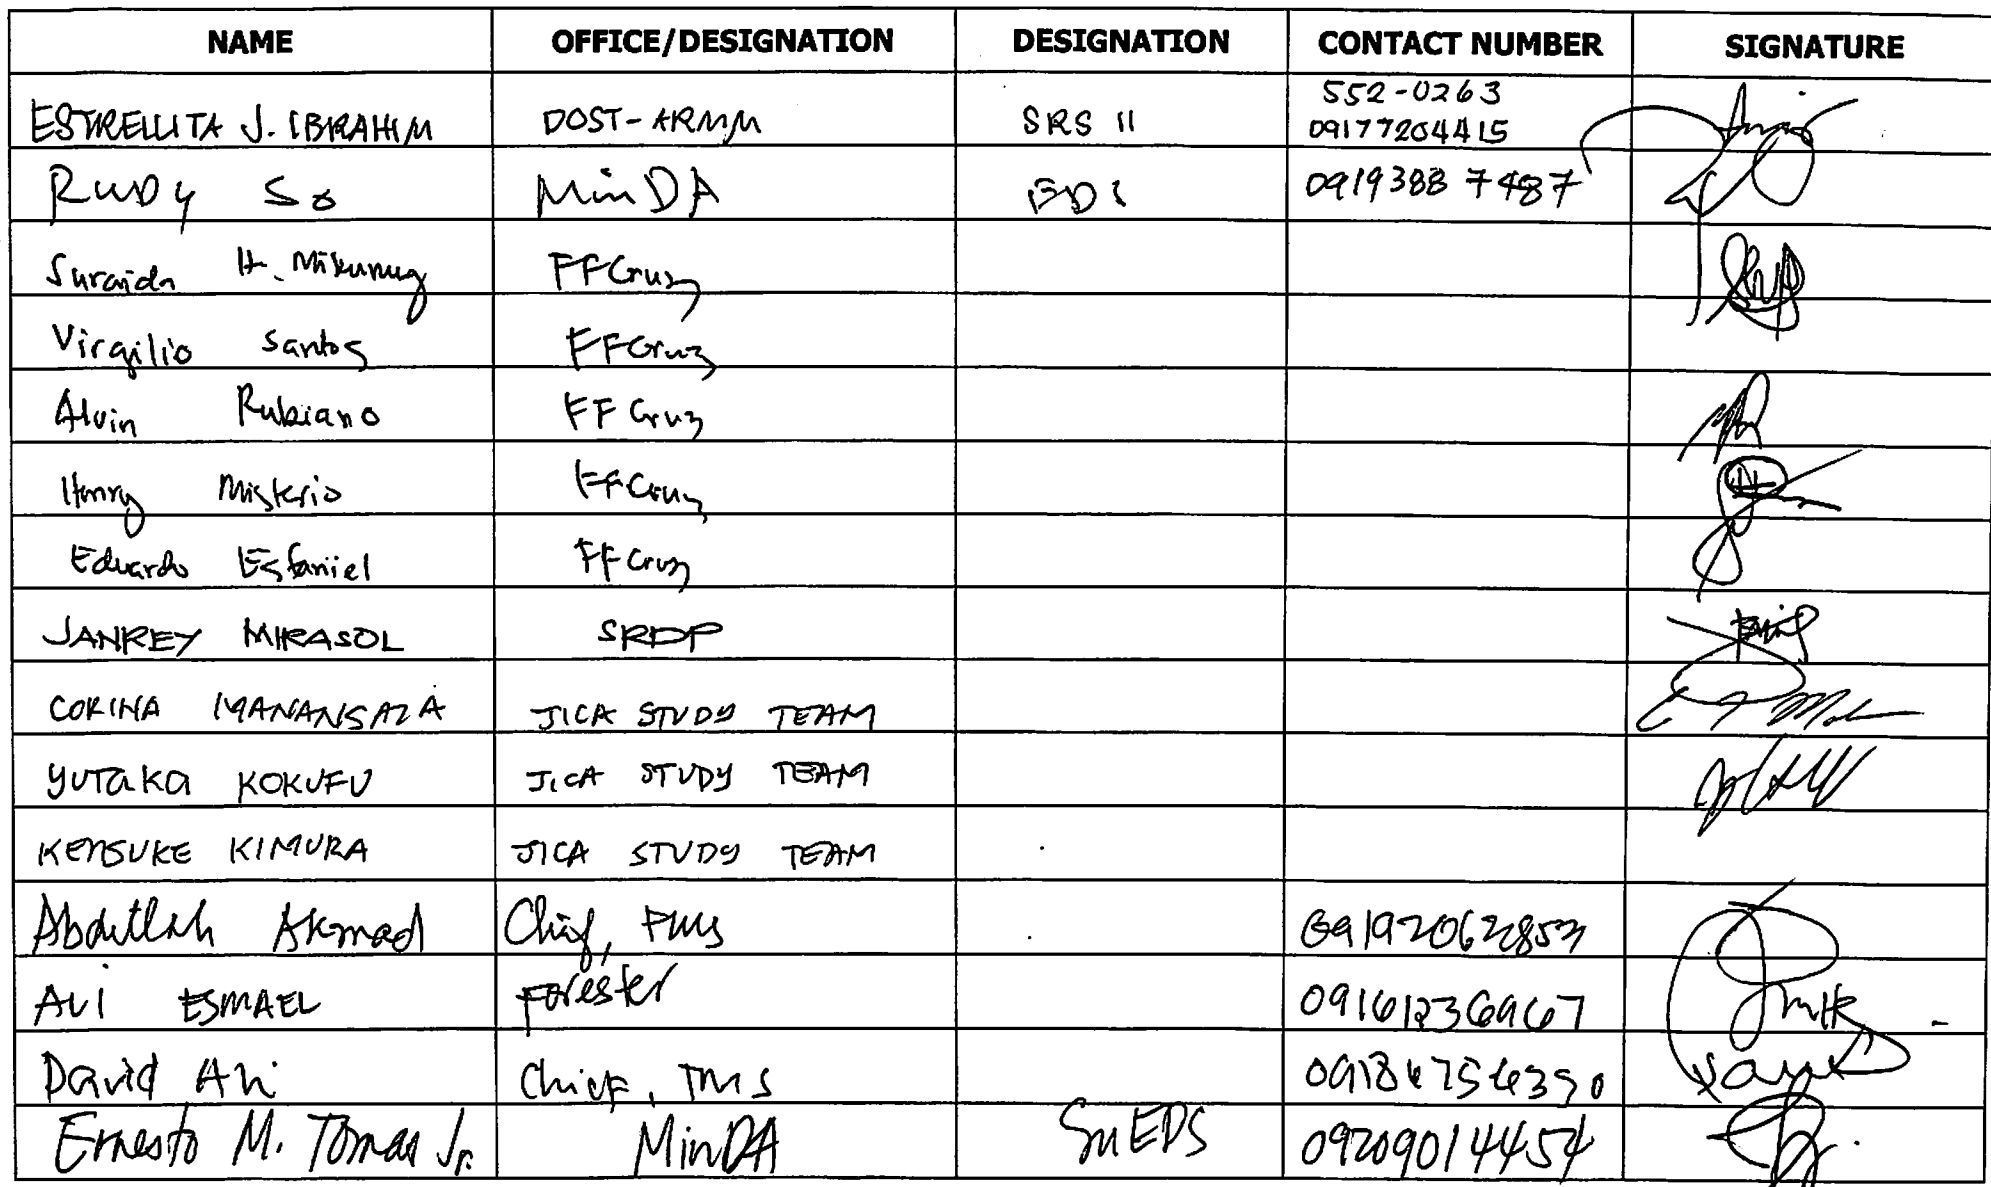 NAME OFFICE/DESIGNATION DESIGNATION CONTACT NUMBER SIGNATURE
552-0263
ESTRELLITA J. IBRAHIM DOST-ARMM SRS II 09177204415
Rudy So MinDA 09193887487
Suraida H. FFCruz
Virgilio Santos FFCruz
Alvin Rubiano FF Cruz
Henry Misterio FFCruz
Eduardo FFCruz
JANREY MIRASOL SRDP
CORINA MANANSALA JICA STUDY TEAM
YUTAKA KOKUFU JICA STUDY TEAM
KENSUKE KIMURA JICA STUDY TEAM
Abdullah Akmad Chief, FMS
Ali ESMAEL Forester
David Ali Chief,
Ernesto M. Tomas Jr. MinDA 09209014454